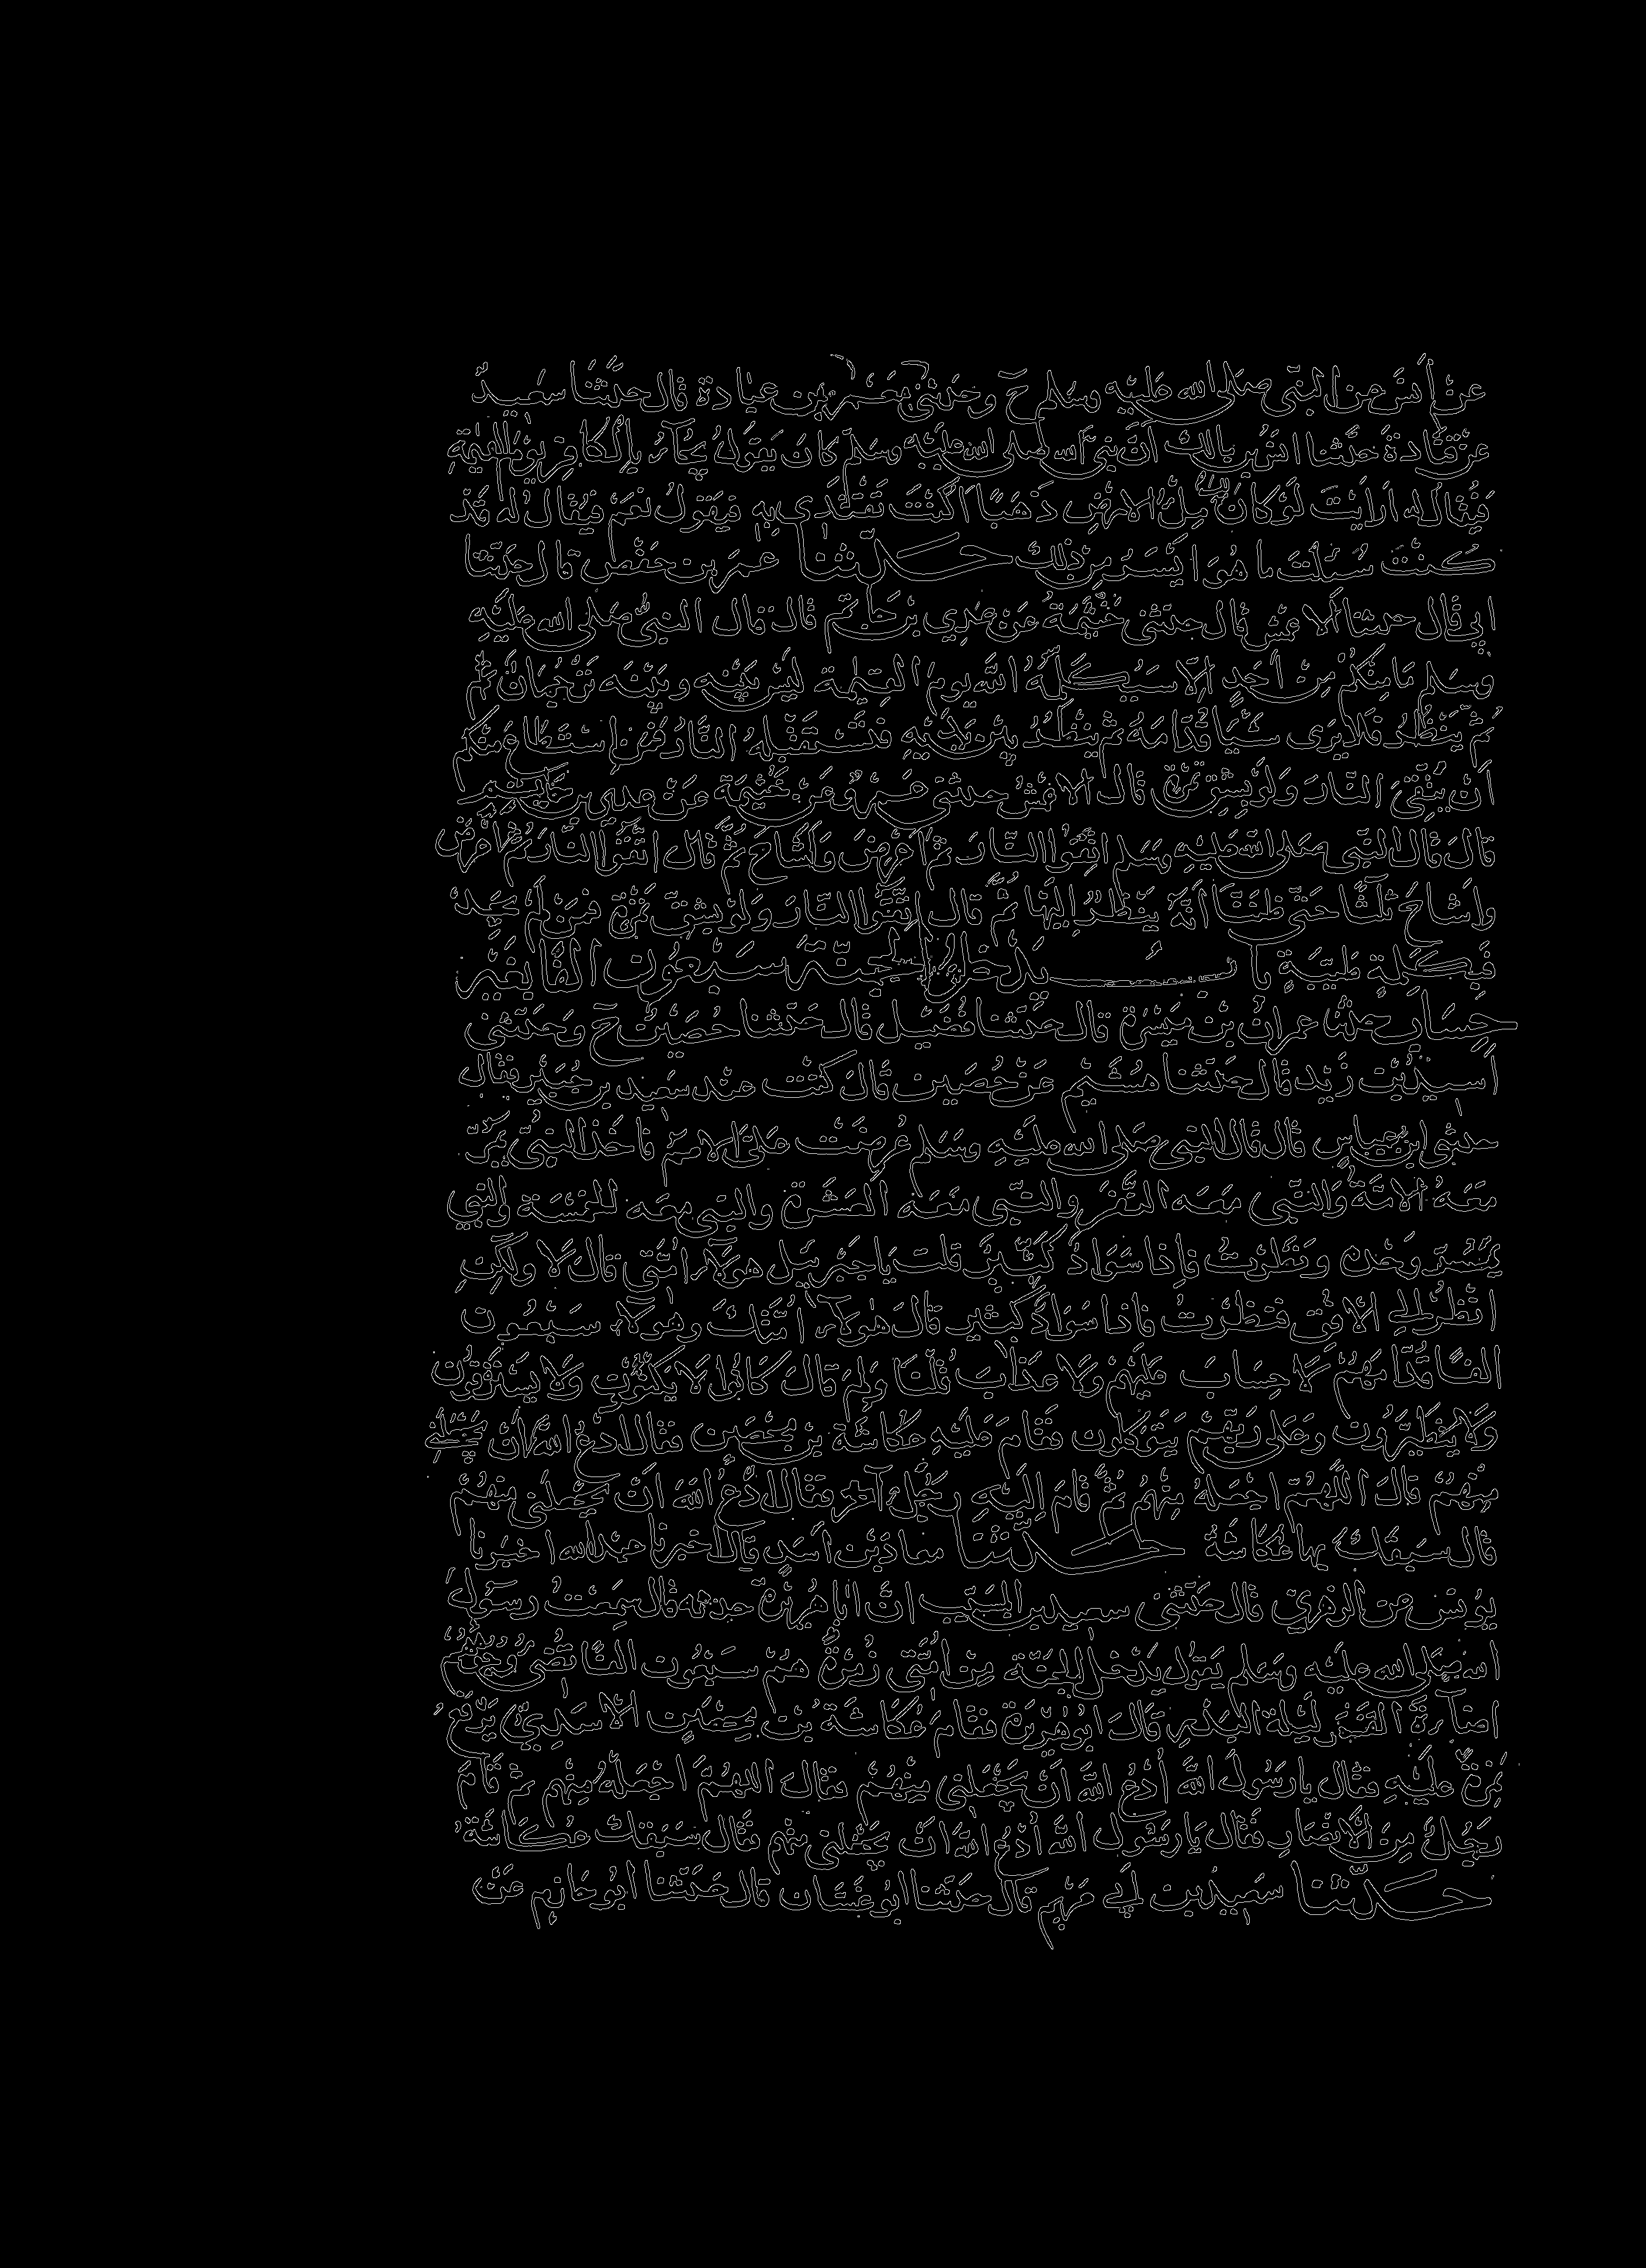 عن أنس عن النبي صلى الله عليه وسلم ح وحدثني معمر بن عبادة قال حدثنا سعيد
عن قتادة حدثنا انس بن مالك أن نبي الله صلى الله عليه وسلم كان يقول يجاء بالكافر يوم القيمة
فيقال له ارأيت لو كان لك مل الارض ذهبا اكنت تفتدي به فيقول نعم فيقال له قد
كنت سئلت ما هو ايسر من ذلك حدثنا عمر بن حفص قال حدثنا
ابي قال حدثنا الاعمش قال حدثني خيثمة عن عدي بن حاتم قال قال النبي صلى الله عليه
وسلم ما منكم من أحد الا سيكلمه الله يوم القيمة ليس بينه وبينه ترجمان ثم
ثم ينظر فلا يرى شيأ قدامه ثم ينظر بين يديه فتستقبله النار فمن استطاع منكم
أن يتقي النار ولو بشق تمرة قال الاعمش حدثني عمرو عن خيثمة عن عدي بن حاتم
قال قال النبي صلى الله عليه وسلم اتقوا النار ثم اعرض واشاح ثم قال اتقوا النار ثم اعرض
واشاح ثلاثا حتى ظننا أنه ينظر اليها ثم قال اتقوا النار ولو بشق تمرة فمن لم يجد
فبكلمة طيبة باب يدخل الجنة سبعون الفا بغير
حساب حدثنا عمران بن ميسرة قال حدثنا فضيل قال حدثنا حصين ح وحدثني
اسيد بن زيد قال حدثنا هشيم عن حصين قال كنت عند سعيد بن جبير فقال
حدثني ابن عباس قال قال النبي صلى الله عليه وسلم عرضت على الامم فاخذ النبي يمر
معه الامة والنبي معه النفر والنبي معه العشرة والنبي معه الخمسة والنبي
يمر وحده ونظرت فاذا سواد كثير قلت يا جبريل هولاء امتي قال لا ولكن
انظر الى الافق فنظرت فاذا سواد كثير قال هولاء امتك وهولاء سبعون
الفا قدامهم لا حساب عليهم ولا عذاب قلت ولم قال كانوا لا يكتوون ولا يسترقون
ولا يتطيرون وعلى ربهم يتوكلون فقام عليه عكاشة بن محصن فقال ادع الله ان يجعلني
منهم قال اللهم اجعله منهم ثم قام اليه رجل آخر فقال ادع الله ان يجعلني منهم
قال سبقك بها عكاشة حدثنا معاذ بن اسد قال اخبرنا عبد الله اخبرنا
يونس عن الزهري قال حدثني سعيد بن المسيب ان ابا هريرة حدثه قال سمعت رسول
الله صلى الله عليه وسلم يقول يدخل الجنة من امتي زمرة هم سبعون الفا تضيء وجوههم
اضاءة القمر ليلة البدر قال ابو هريرة فقام عكاشة بن محصن الاسدي يرفع
نمرة عليه فقال يا رسول الله أدع الله أن يجعلني منهم فقال اللهم اجعله منهم ثم قام
رجل من الانصار فقال يا رسول الله أدع الله ان يجعلني منهم فقال سبقك عكاشة
حدثنا سعيد بن ابي مريم قال حدثنا ابو غسان قال حدثنا ابو حازم عن